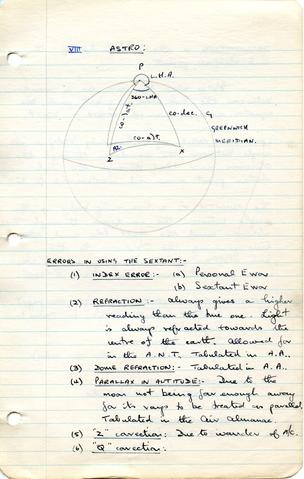 VIII ASTRO:
P
L.H.A.
360-LHA
co-lat.
co-dec.
G
GREENWICH
MERIDIAN.
AZ
co-alt.
Z
X
ERRORS IN USING THE SEXTANT:-
(1) INDEX ERROR:- (a) Personal Error
(b) Sextant Error
(2) REFRACTION:- always gives a higher
reading than the true one. Light
is always refracted towards the
centre of the earth. Allowed for
in the A.N.T. Tabulated in A.A..
(3) DOME REFRACTION:- Tabulated in A.A..
(4) PARALLAX IN ALTITUDE:- Due to the
moon not being far enough away
for its rays to be treated as parallel.
Tabulated in the Air Almanac.
(5) "Z" correction: Due to wander of A/C.
(6) "Q" correction: